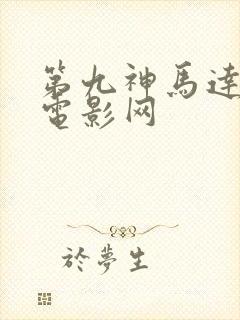 第九神馬達
電影网
於夢生